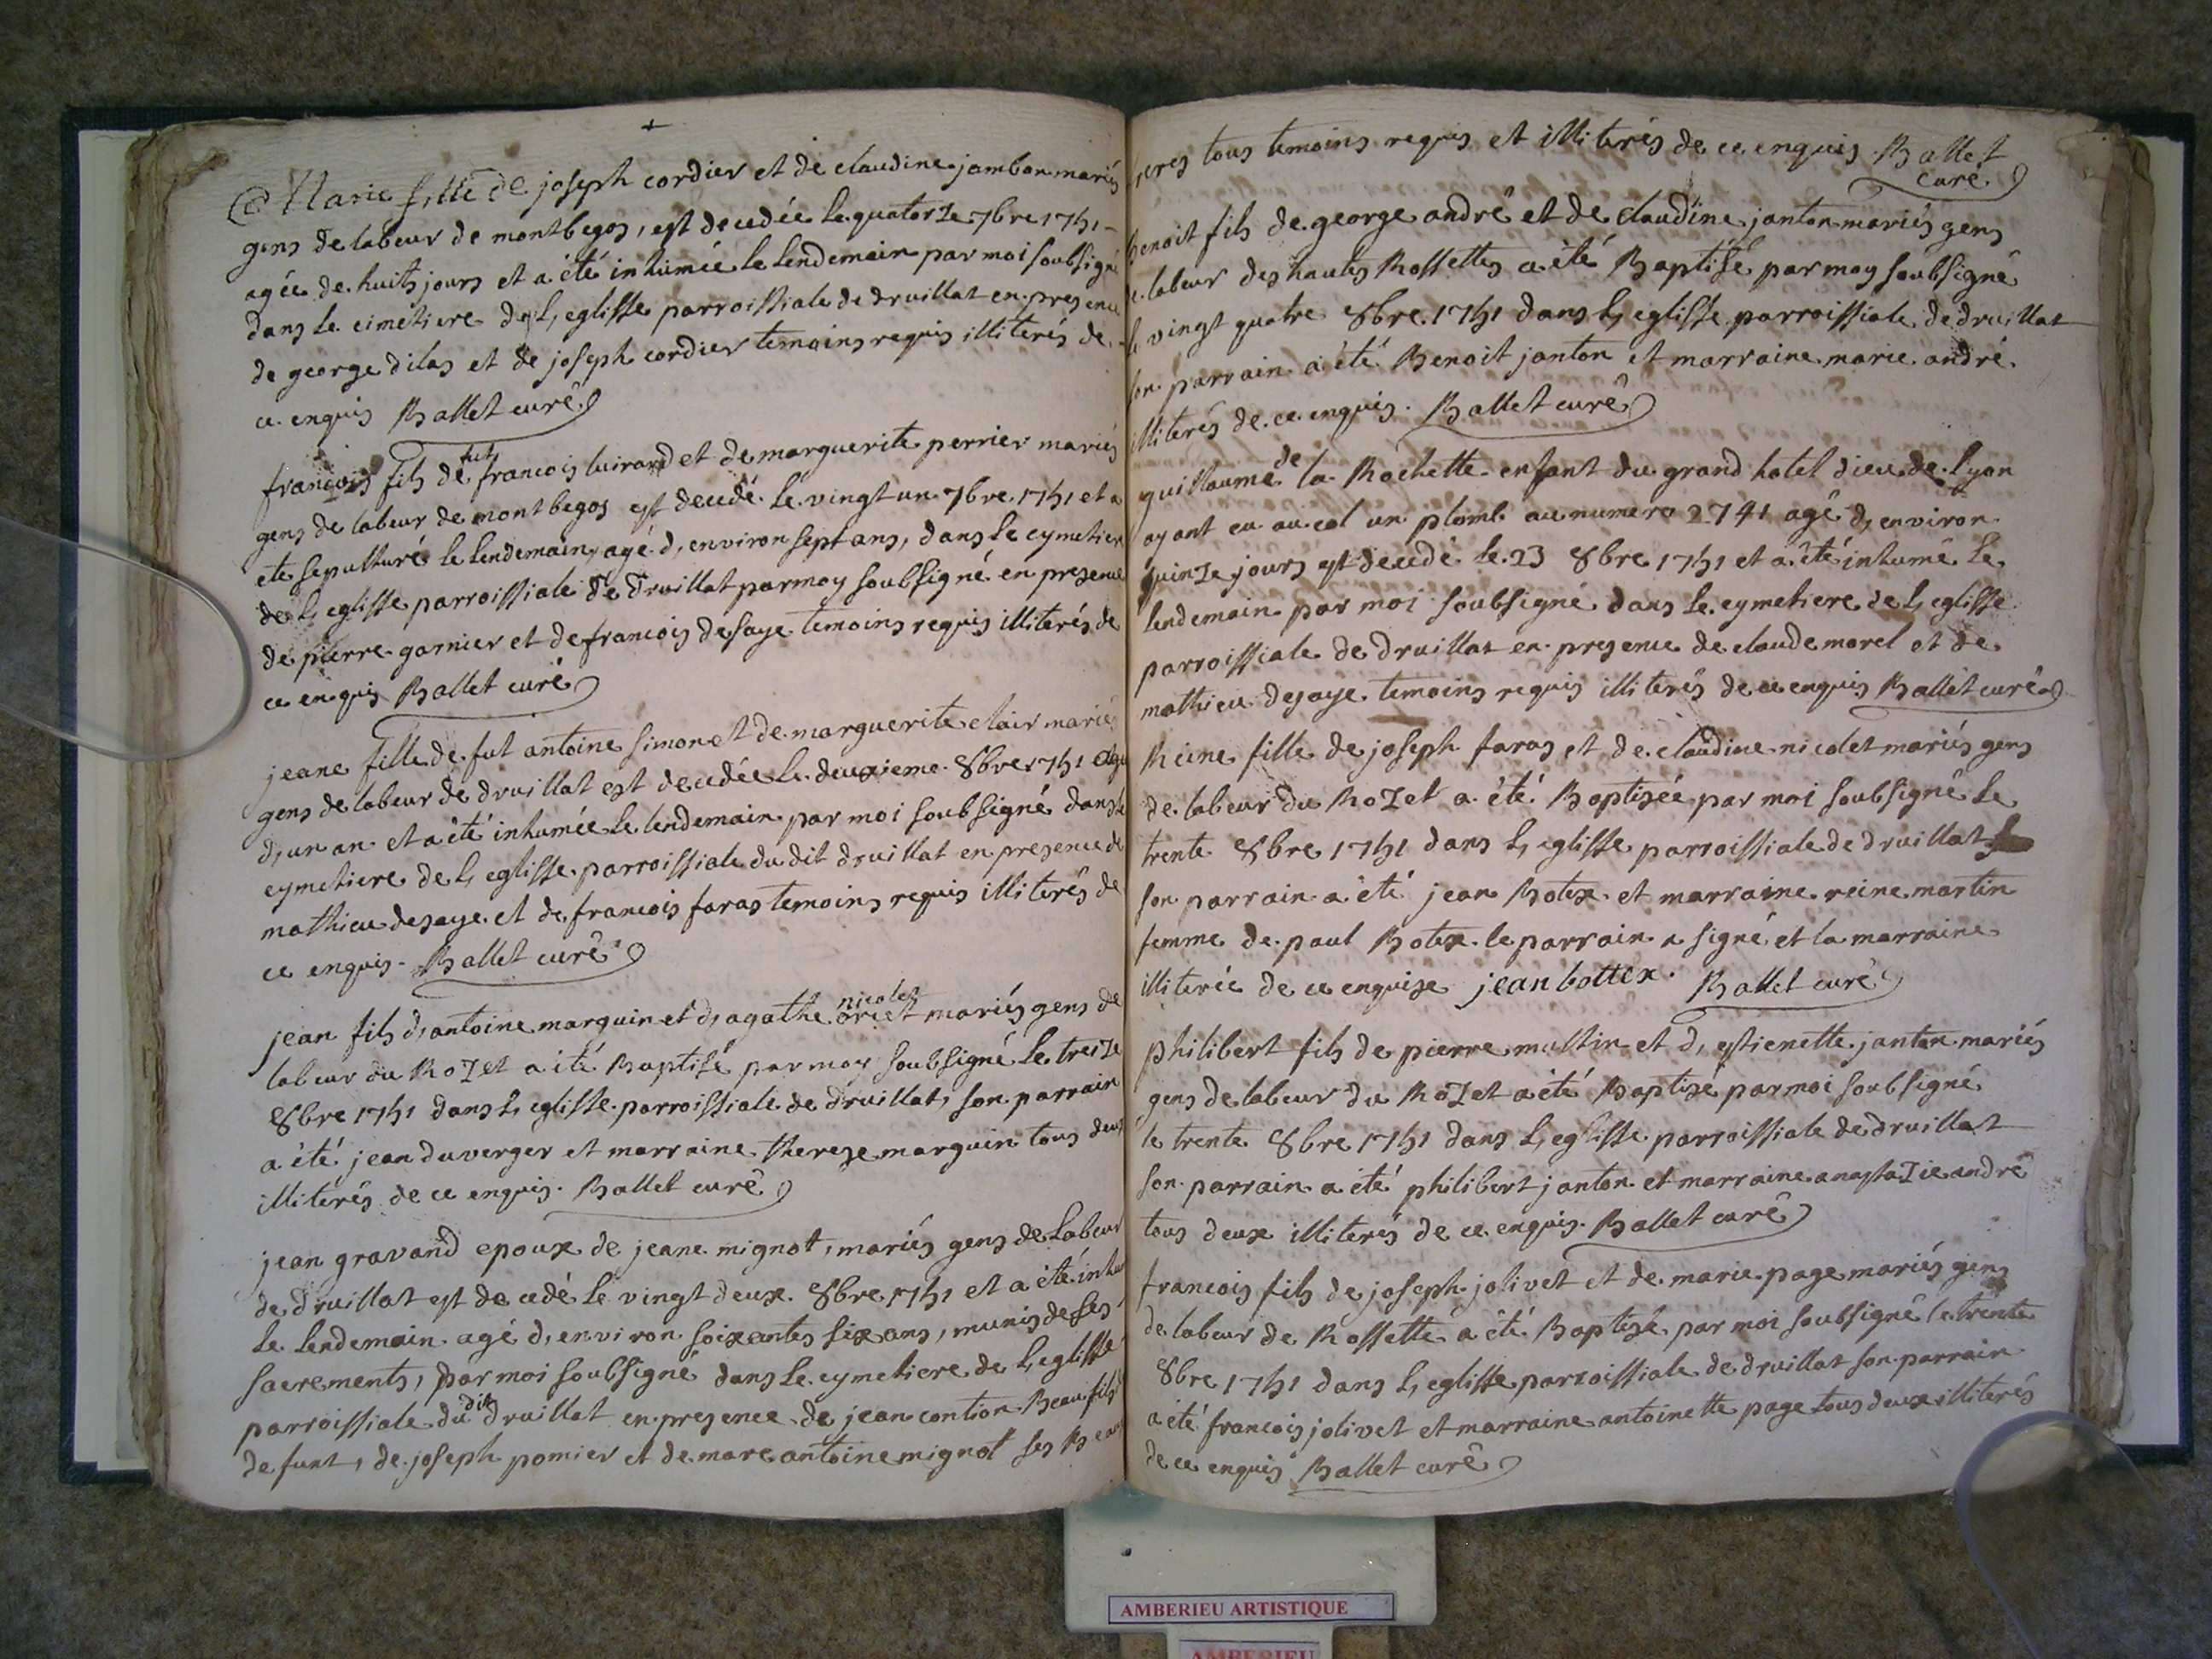 Marie fille de joseph cordier et de claudine jambon mariés
gens de labeur de montbegos, est decedée le quatorze 7bre 1751
agée de huits jours et a été inhumée le lendemain par moi soubsigné
dans le cimetiere de l, eglisse parroissiale de druillat en presence
de george dilas et de joseph cordier temoins requis illiterés de
ce enquis Ballet curé
francois fils de fut francois luirard et de marguerite perrier mariés
gens de labeur de montbegos est decedé le vingt un 7bre 1751 et a
ete sepulturé le lendemain, agé d, environ sept ans, dans le cymetiere
de l, eglisse parroissiale de druillat par moy soubsigné en presence
de pierre garnier et de francois desaye temoins requis illiterés de
ce enquis Ballet curé
jeane fille de fut antoine simon et de marguerite clair mariés
gens de labeur de druillat est decedée le deuxieme 8bre 1751 agée
d, un an et a été inhumée le lendemain par moi soubsigné dans le
cymetiere de l, eglisse parroissiale du dit druillat en presence de
mathieu desaye et de francois faras temoins requis illiterés de
ce enquis Ballet curé
jean fils d, antoine marguin et d, agathe nicolet mariés gens de
labeur du Rozet a été Baptisé par moy soubsigné le treize
8bre 1751 dans l, eglisse parroissiale de druillat, son parrain
a été jean duverger et marraine therese marguin tous deux
illiterés de ce enquis. Ballet curé
jean gravand epoux de jeane mignot, mariés gens de labeur
de druillat est decedé le vingt deux 8bre 1751 et a été inhu
le lendemain agé d, environ soixantes six ans, munis de ses
sacrements, par moi soubsigné dans le cymetiere de l, eglisse
parroissiale du dit druillat en presence de jean contion Beaufils
defunt, de joseph pomier et de marc antoine mignot ses Beau
freres tous temoins requis et illiterés de ce enquis Ballet
curé
Benoit fils de george andré et de claudine janton mariés gens
de labeur des hautes Rossettes a été Baptisé par moy soubsigné
le vingt quatre 8bre 1751 dans l, eglisse parroissiale de druillat
son parrain a été Benoit janton et marraine marie andré
illiterés de ce enquis. Ballet curé
guillaume de la Rochette enfant du grand hotel dieu de lyon
ayant eu au col un plomb au numero 2741 agé d, environ
quinze jours est decedé le 23 8bre 1751 et a été inhumé le
lendemain par moi soubsigné dans le cymetiere de l, eglisse
parroissiale de druillat en presence de claude morel et de
mathieu desaye temoins requis illiterés de ce enquis Ballet curé
Reine fille de joseph faras et de claudine nicolet mariés gens
de labeur du Rozet a été Baptisée par moi soubsigné le
trente 8bre 1751 dans l, eglisse parroissiale de druillat
son parrain a été jean Botex et marraine reine martin
femme de paul Botex le parrain a signé et la marraine
illiterée de ce enquise jean bottex. Ballet curé
philibert fils de pierre multin et d, estienette janton mariés
gens de labeur du Rozet a été Baptisé par moi soubsigné
le trente 8bre 1751 dans l, eglisse parroissiale de druillat
son parrain a été philibert janton et marraine anastazie andré
tous deux illiterés de ce enquis. Ballet curé
francois fils de joseph jolivet et de marie page mariés gens
de labeur de Rossette a été Baptisé par moi soubsigné le trente
8bre 1751 dans l, eglisse parroissiale de druillat son parrain
a été francois jolivet et marraine antoinette page tous deux illiterés
de ce enquis Ballet curé
AMBERIEU ARTISTIQUE
AMBERIEU